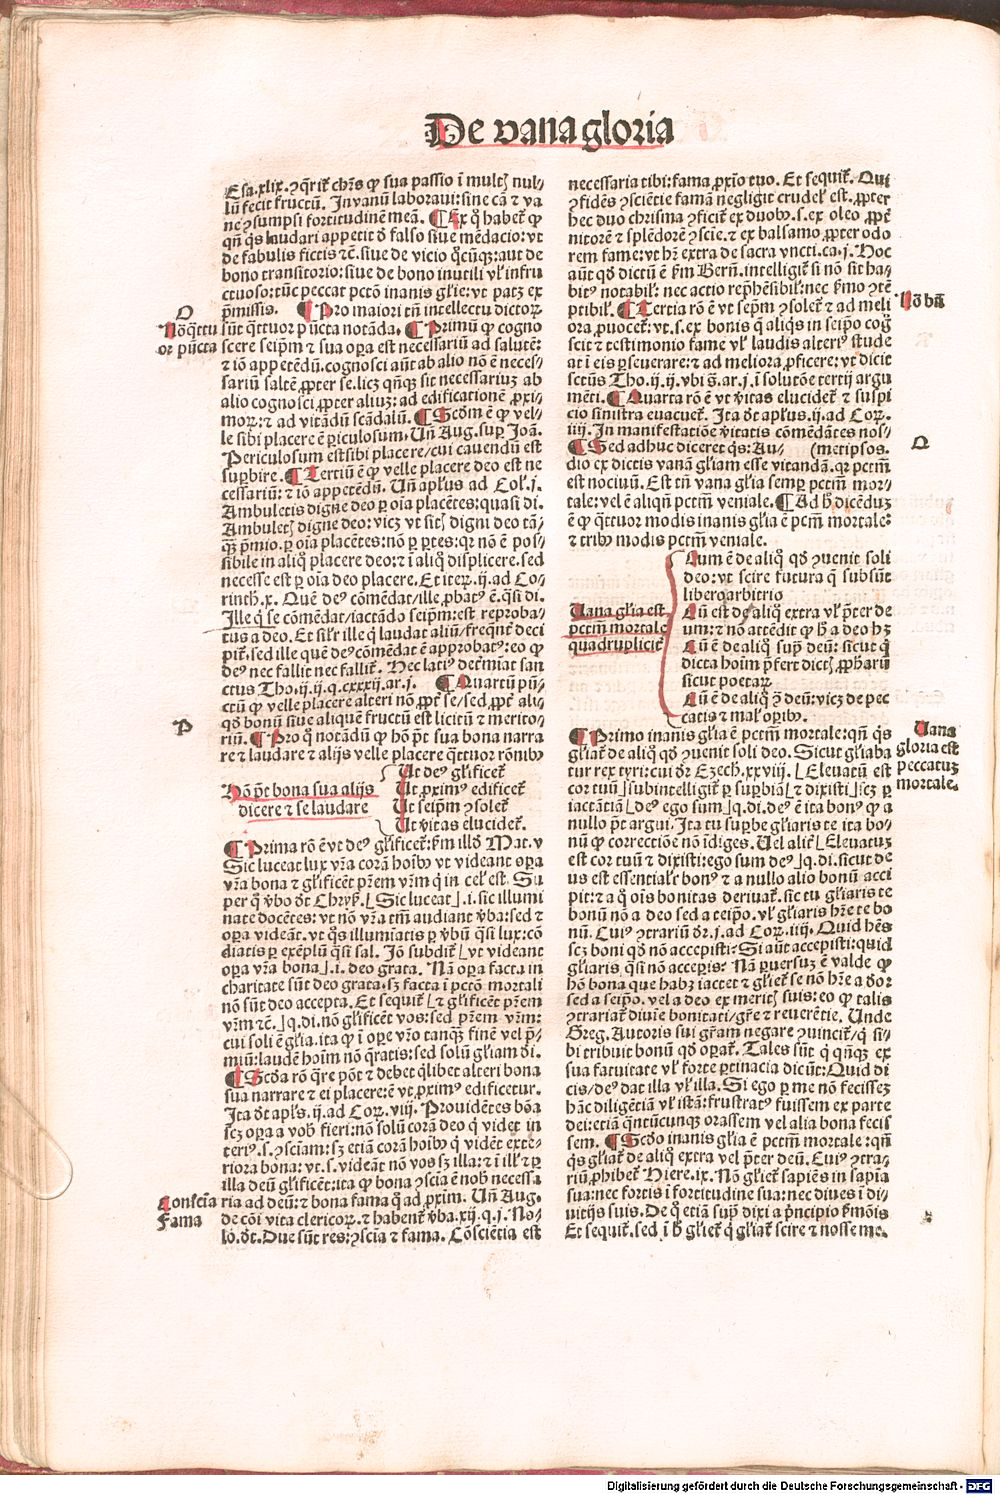 De vana gloria
Esa.xlix.ꝯq̄rit᷑ chr̄s ꝙ sua passio ī multꝭ nul⸗
lū fecit fructū. In vanū laboraui: sine cā ⁊ va
ne ꝯsumpsi fortitudinē meā. ¶Ex q̊ habet᷑ ꝙ
qn̄ q̄s laudari appetit ꝺ falso siue mēdacio: vt
de fabulis fictis ⁊c̄. siue de vicio q̊cūqꝫ: aut de
bono transitorio: siue de bono inutili vl̓ infru
ctuoso: tūc peccat pctō inanis gl̓ie: vt patꝫ ex
p̄missis. ¶Pro maiori tn̄ intellectu dictoꝝ
O
Nō q̄ttu
or pūcta
sūt q̄ttuor pūcta notāda. ¶Primū ꝙ cogno
scere seip̄m ⁊ sua oꝑa est necessariū ad salutē:
⁊ iō appetēdū. cognosci aūt ab alio nō ē neces⸗
sariū saltē ꝓpter se. licꝫ qn̄qꝫ sit necessariuꝫ ab
alio cognosci ꝓpter aliuꝫ: ad edificationē ꝓxi⸗
moꝝ: ⁊ ad vitādū scādalū. ¶Scd̓m ē ꝙ vel⸗
le sibi placere ē ꝑiculosum. Un̄ Aug. suꝑ Joā.
Periculosum est sibi placere/cui cauendū est
suꝑbire. ¶Tertiū ē ꝙ velle placere deo est ne
cessariū: ⁊ iō appetēdū. Un̄ apl̓us ad Col̓.j.
Ambuletis digne deo ꝑ oīa placētes: quasi di.
Ambuletꝭ digne deo: vicꝫ vt sitꝭ digni deo tā⸗
qꝫ p̄mio. ꝑ oīa placētes: nō ꝑ ꝑtes: qꝛ nō ē pos⸗
sibile in aliq̊ placere deo: ⁊ ī aliq̊ displicere. sed
necesse est ꝑ oīa deo placere. Et iteꝝ.ij.ad Co⸗
rinth.x. Quē deꝰ cōmēdat/ille ꝓbatꝰ ē. q̄si di.
Ille q̇ se cōmēdat/iactādo seip̄m: est reproba⸗
tus a deo. Et sil̓r ille q̇ laudat aliū/freqn̄t᷑ deci
pit᷑. sed ille quē deꝰ cōmēdat ē approbatꝰ: eo ꝙ
deꝰ nec fallit nec fallit᷑. Nec latiꝰ det᷑mīat san
ctus Tho.ij.ij.q.cxxxij.ar.j. ¶Quartū pū⸗
ctū ꝙ velle placere alteri nō ꝓpt᷑ se/sed ꝓpt᷑ ali⸗
P
qd̓ bonū siue aliquē fructū est licitū ⁊ merito⸗
riū. ¶Pro q̊ notādū ꝙ hō p̄t sua bona narra
re ⁊ laudare ⁊ alijs velle placere q̄ttuor rōnibꝰ
Hō p̄t bona sua alijs
dicere ⁊ se laudare
Ut deꝰ gl̓ificet᷑
Ut ꝓximꝰ edificet᷑
Ut seip̄m ꝯsolet᷑
Ut v̓itas elucidet᷑.
¶Prima rō ē vt deꝰ gl̓ificet᷑: fm̄ illd̓ Mat.v
Sic luceat lux vr̄a corā hoībꝰ vt videant oꝑa
vr̄a bona ⁊ gl̓ificēt pr̄em vr̄m q̇ in cel̓ est. Su
per q̊ v̓bo dt̓ Chryẜ. ⌊Sic luceat⌋.i. sic illumi
nate docētes: vt nō vr̄a tm̄ audiant v̓ba: sed ⁊
oꝑa videāt. vt q̊s illumīatis ꝑ v̓bū q̄si lux: cō
diatis ꝑ exēplū q̄si sal. Iō subdit᷑ ⌊vt videant
oꝑa vr̄a bona⌋.i. deo grata. Nā oꝑa facta in
charitate sūt deo grata. sꝫ facta ī pctō mortali
nō sūt deo accepta. Et sequit᷑ ⌊⁊ gl̓ificēt pr̄em
vr̄m ⁊c̄.⌋q.di. nō gl̓ificēt vos: sed pr̄em vr̄m:
cui soli ē gl̓ia. ita ꝙ ī oꝑe vr̄o tanqꝫ finē vel p̄⸗
miū: laudē hoīm nō q̄ratis: sed solū gl̓iam di.
¶Scd̓a rō q̄re pōt ⁊ debet q̇libet alteri bona
sua narrare ⁊ ei placere: ē vt ꝓximꝰ edificetur.
Ita dt̓ apl̓s.ij.ad Coꝝ.viij. Prouidētes bōa
scꝫ oꝑa a vob̓ fieri: nō solū corā deo q̇ videt in
teriꝰ.s.ꝯsciam: sꝫ etiā corā hoībꝰ q̇ vidēt exte⸗
riora bona: vt.s.videāt nō vos sꝫ illa: ⁊ ī ill̓ ⁊ ꝑ
illa deū gl̓ificēt: ita ꝙ bona ꝯscia ē nob̓ necessa
Consciēa
Fama
ria ad deū: ⁊ bona fama q̊ ad ꝓxim. Un̄ Aug.
de cōi vita clericoꝝ. ⁊ habent᷑ v̓ba.xij.q.j. No⸗
lo. dt̓. Due sūt res: ꝯscia ⁊ fama. Cōsciētia est
necessaria tibi: fama ꝓxīo tuo. Et sequit᷑. Qui
ꝯfidēs ꝯsciētie famā negligit crudel̓ est. ꝓpter
hec duo chrisma ꝯficit᷑ ex duobꝰ.s.ex oleo ꝓpt᷑
nitorē ⁊ splēdorē ꝯscie. ⁊ ex balsamo ꝓpter odo
rem fame: vt hr̄ extra de sacra vncti.ca.j. Hoc
aūt qd̓ dictū ē fm̄ Bern̄. intelligit᷑ si nō sit ha⸗
bitꝰ notabil̓: nec actio rep̄hēsibil̓: nec s̓mo ꝯtē
Nō bn̄
ptibil̓. ¶Tertia rō ē vt seip̄m ꝯsolet᷑ ⁊ ad meli
ora ꝓuocet᷑: vt.s.ex bonis q̄ aliq̇s in seip̄o cog̊
scit ⁊ testimonio fame vl̓ laudis alteriꝰ stude
at ī eis ꝑseuerare: ⁊ ad meliora ꝓficere: vt dicit
sctūs Tho.ij.ij.vbi s̄.ar.j.ī solutōe tertij argu
mēti. ¶Quarta rō ē vt v̓itas elucidet᷑ ⁊ suspi
cio sinistra euacuet᷑. Ita dt̓ apl̓us.ij.ad Coꝝ.
iiij. In manifestatiōe v̓itatis cōmēdātes nos⸗
¶Sed adhuc diceret q̄s: Au⸗ (metipsos.
Q
dio ex dictis vanā gl̓iam esse vitandā. qꝛ pctm̄
est nociuū. Est tn̄ vana gl̓ia semꝑ pctm̄ mor⸗
tale: vel ē aliqn̄ pctm̄ veniale. ¶Ad h̓ dicēduꝫ
ē ꝙ q̄ttuor modis inanis gl̓ia ē pctm̄ mortale:
⁊ tribꝰ modis pctm̄ veniale.
Uana gl̓ia est
pctm̄ mortale
quadruplicit᷑
Cum ē de aliq̊ qd̓ ꝯuenit soli
deo: vt scire futura q̄ subsūt
libero arbitrio
Cū est de aliq̊ extra vl̓ p̄ter de
um: ⁊ nō attēdit ꝙ h̓ a deo hꝫ
Cū ē de aliq̊ sup̄ deū: sicut q̇
dicta hoīm p̄fert dictꝭ ꝓph̓arū
sicut poetaꝝ
Cū ē de aliq̊ ꝯ̄ deū: vicꝫ de pec
catis ⁊ mal̓ oꝑibꝰ.
Uana
gloria est
peccatuꝫ
mortale.
¶Primo inanis gl̓ia ē pctm̄ mortale: qn̄ q̄s
gl̓iat᷑ de aliq̊ qd̓ ꝯuenit soli deo. Sicut gl̓iaba
tur rex tyri: cui dr̄ Ezech.xxviij. ⌊Eleuatū est
cor tuū⌋subintelligit᷑ ꝑ suꝑbiā ⌊⁊ dixisti⌋scꝫ ꝑ
iactātiā ⌊deꝰ ego sum⌋q.di. deꝰ ē ita bonꝰ ꝙ a
nullo p̄t argui. Ita tu suꝑbe gl̓iaris te ita bo⸗
nū ꝙ correctiōe nō īdiges. Uel alit᷑ ⌊Eleuatuꝫ
est cor tuū ⁊ dixisti: ego sum deꝰ⌋q.di. sicut de
us est essential̓r bonꝰ ⁊ a nullo alio bonū acci
pit: ⁊ a q̊ oīs bonitas deriuat᷑. sic tu gl̓iaris te
bonū nō a deo sed a teip̄o. vl̓ gl̓iaris hr̄e te bo
nū. Cuiꝰ ꝯtrariū dr̄.j.ad Coꝝ.iiij. Quid hēs
scꝫ boni qd̓ nō accepisti? Si aūt accepisti: quid
gl̓iaris q̄si nō acceꝑis? Nā ꝑuersuꝫ ē valde ꝙ
hō bona que habꝫ iactet ⁊ gl̓iet᷑ se nō hr̄e a dꝺr
sed a seip̄o. vel a deo ex meritꝭ suis: eo ꝙ talis
ꝯtrariat᷑ diuīe bonitati/gr̄e ⁊ reuerētie. Unde
Greg. Autoris sui gr̄am negare ꝯuincit᷑/q̇ si⸗
bi tribuit bonū qd̓ oꝑat᷑. Tales sūt q̇ qn̄qꝫ ex
sua fatuitate vl̓ forte ꝑtinacia dicūt: Quid di
cis/deꝰ dat illa vl̓ illa. Si ego ꝑ me nō fecisseꝫ
hāc diligētiā vl̓ istā: frustratꝰ fuissem ex parte
dei: etiā q̄ntūcunqꝫ orassem vel alia bona fecis
sem. ¶Scd̓o inanis gl̓ia ē pctm̄ mortale: qn̄
q̄s gl̓iat᷑ de aliq̊ extra vel p̄ter deū. Cuiꝰ ꝯtra⸗
riū ꝓhibet᷑ Hiere.ix. Nō gl̓iet᷑ sapiēs in sapīa
sua: nec fortis ī fortitudine sua: nec diues ī di⸗
uitijs suis. De q̊ etiā sup̄ dixi a p̄ncipio s̓mōis
Et sequit᷑. sed ī h̓ gl̓iet᷑ q̇ gl̓iat᷑ scire ⁊ nosse me.
Digitalisierung gefördert durch die Deutsche Forschungsgemeinschaft - DFG